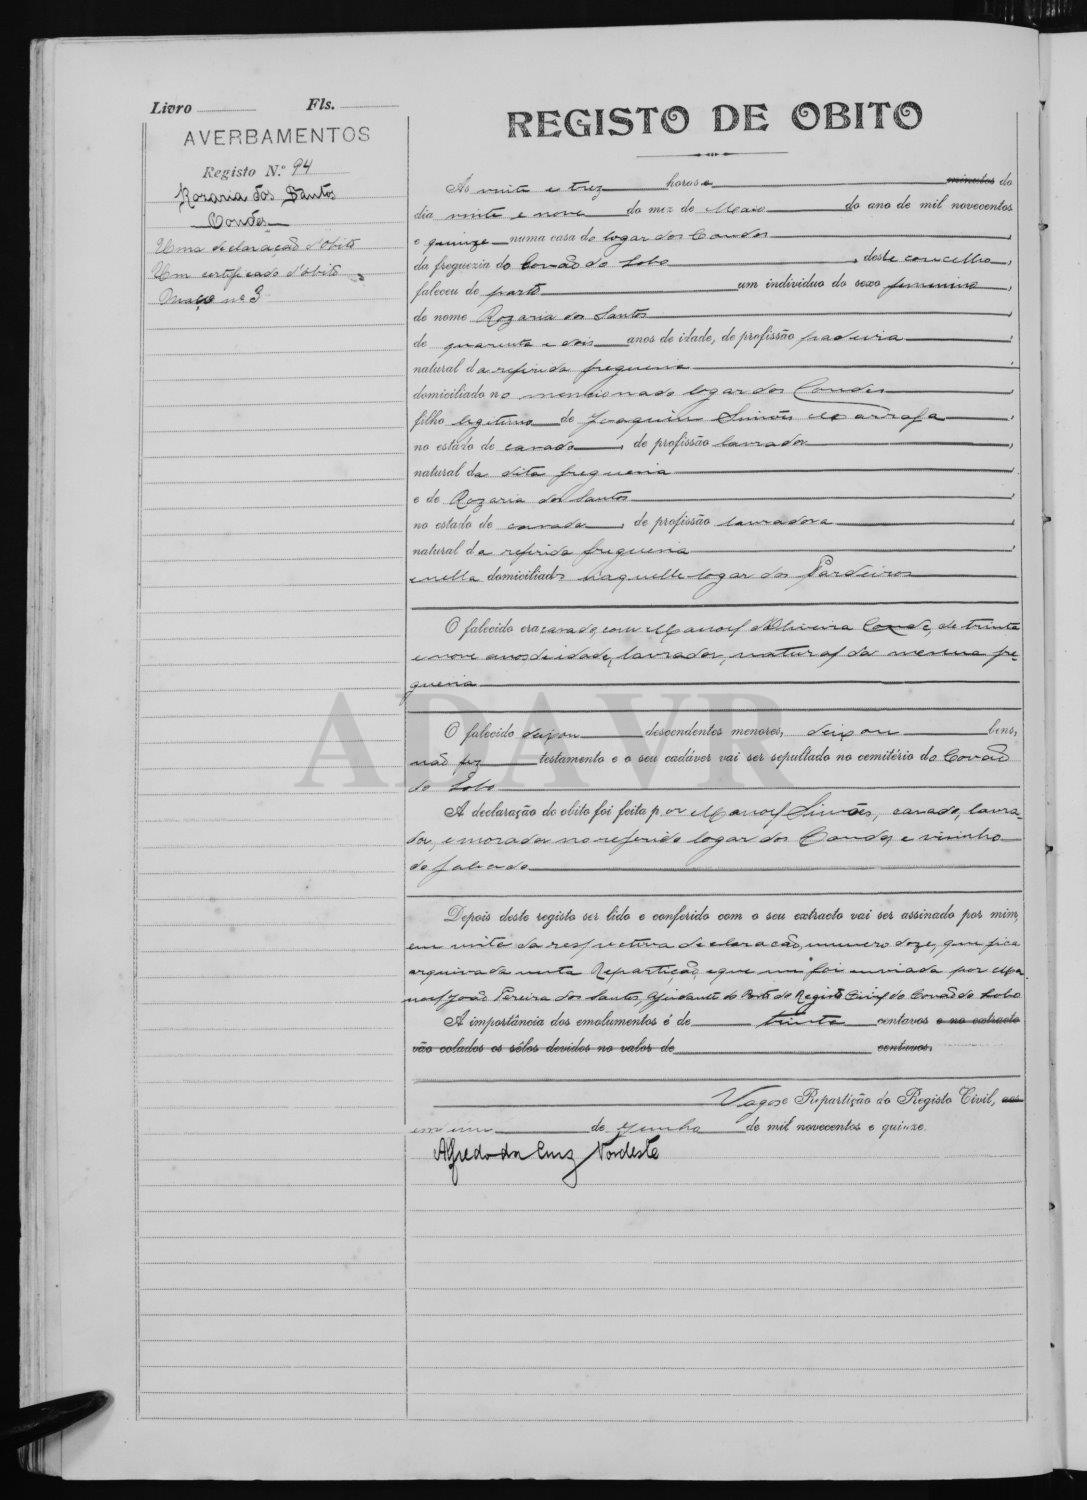 Livro Fls.
AVERBAMENTOS
Registo N.º 94
Rozaria dos Santos
Conde
Uma declaração d'obito
Um certificado d'obito
Maço nº 3
REGISTO DE OBITO
Ás vinte e trez horas e minutos do
dia vinte e nove do mez de Maio do ano de mil novecentos
e quinze numa casa do logar dos Condes
da freguezia do Covão do Lobo, deste concelho,
faleceu de parto um individuo do sexo feminino,
de nome Rozaria dos Santos
de quarenta e dois anos de idade, de profissão padeira,
natural da referida freguesia
domiciliado no mencionado logar dos Condes
filho legitimo de Joaquim Simões Marrafa,
no estado de casado, de profissão lavrador,
natural da dita freguesia
e de Rozaria dos Santos,
no estado de casada, de profissão lavradora,
natural da referida freguesia
e nella domiciliados naquelle logar dos Pardeiros
O falecido era casado com Manoel d'Oliveira Conde, de trinta
e nove anos de idade, lavrador, natural da mesma fre-
guesia
O falecido deixou descendentes menores, deixou bens,
não fez testamento e o seu cadáver vai ser sepultado no cemitério do Covão
do Lobo
A declaração do obito foi feita por Manoel Simões, casado, lavra-
dor, e morador no referido logar dos Condes, e visinho
do falecido
Depois deste registo ser lido e conferido com o seu extracto vai ser assinado por mim,
em vista da respectiva declaração, numero doze, que fica
arquivada nesta Repartição, e que me foi enviada por Ma-
noel João Pereira dos Santos, Ajudante do Posto do Registo Civil do Covão do Lobo
A importância dos emolumentos é de trinta centavos e no extracto
vão colados os sêlos devidos no valor de centavos.
Vagos e Repartição do Registo Civil, aos
em um de Junho de mil novecentos e quinze.
Alfredo da Cruz Nordeste
ADAVR